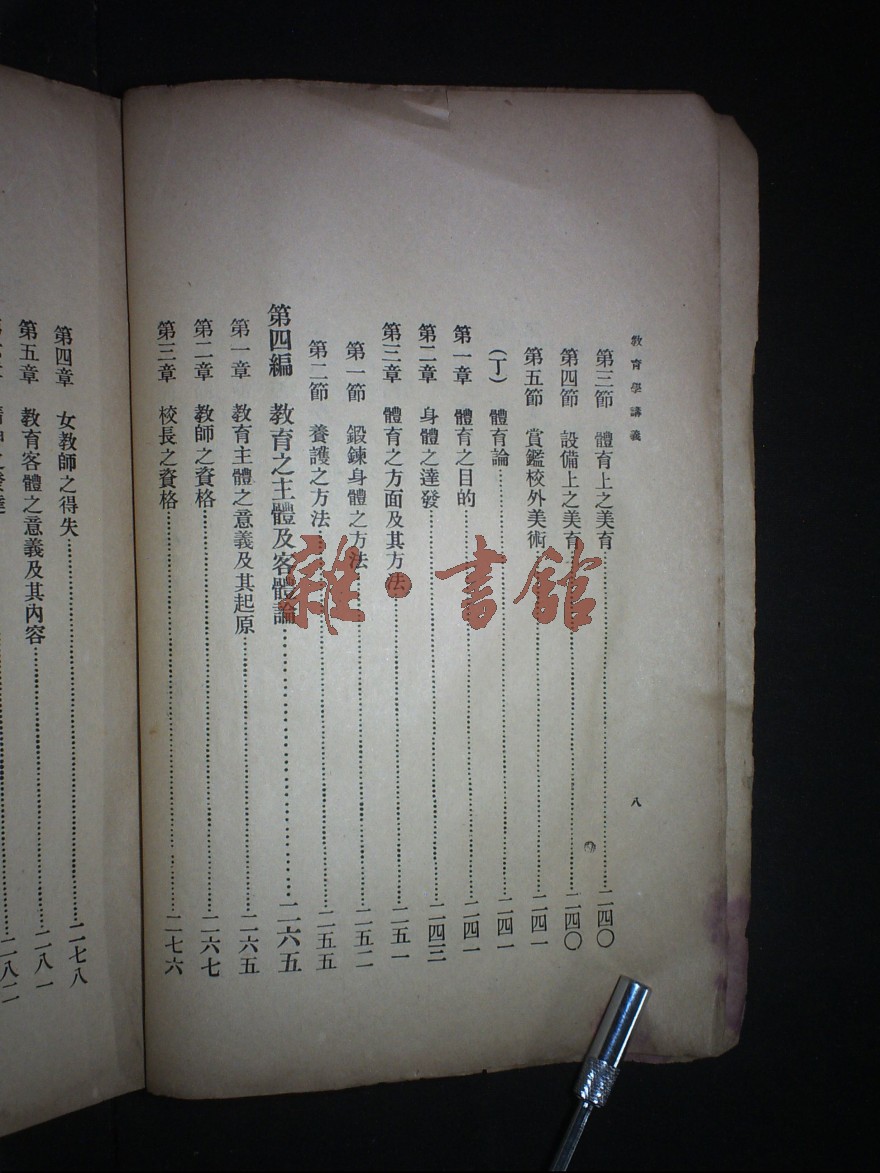 教育學講義
八
第三節 體育上之美育 二四〇
第四節 設備上之美育 二四〇
第五節 賞鑑校外美術 二四一
(丁) 體育論 二四一
第一章 體育之目的 二四一
第二章 身體之達發 二四三
第三章 體育之方面及其方法 二五一
第一節 鍛鍊身體之方法 二五二
第二節 養護之方法 二五五
第四編 教育之主體及客體論 二六五
第一章 教育主體之意義及其起原 二六五
第二章 教師之資格 二六七
第三章 校長之資格 二七六
第四章 女教師之得失 二七八
第五章 教育客體之意義及其內容 二八一
雜·書館